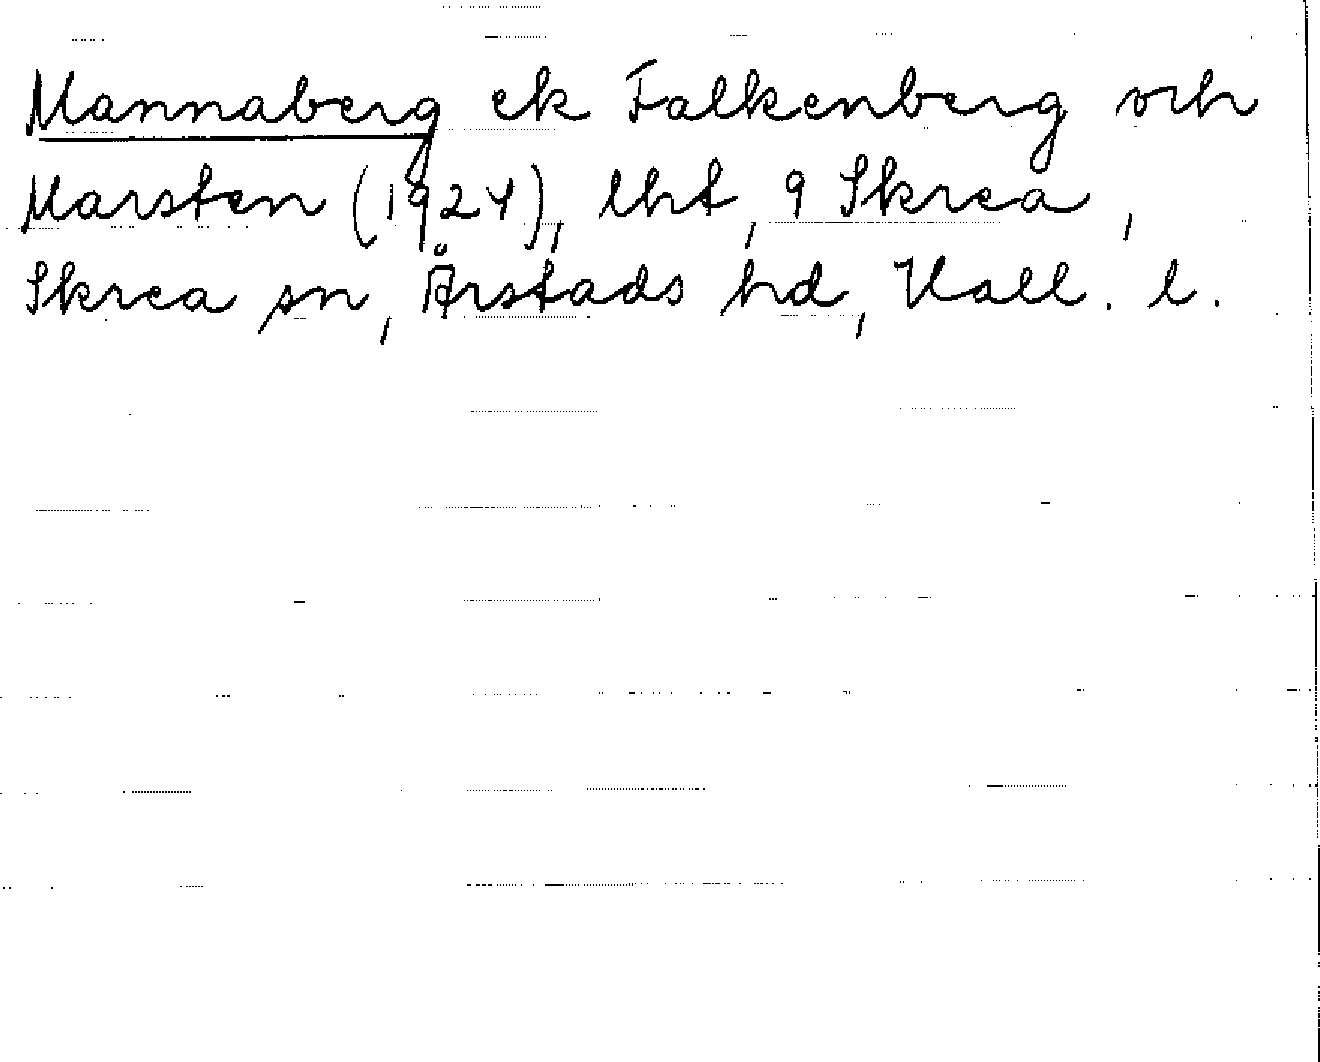 Mannaberg ek Falkenberg och
Marsten (1924), lht, 9 Skrea,
Skrea sn, Årstads hd, Hall. l.